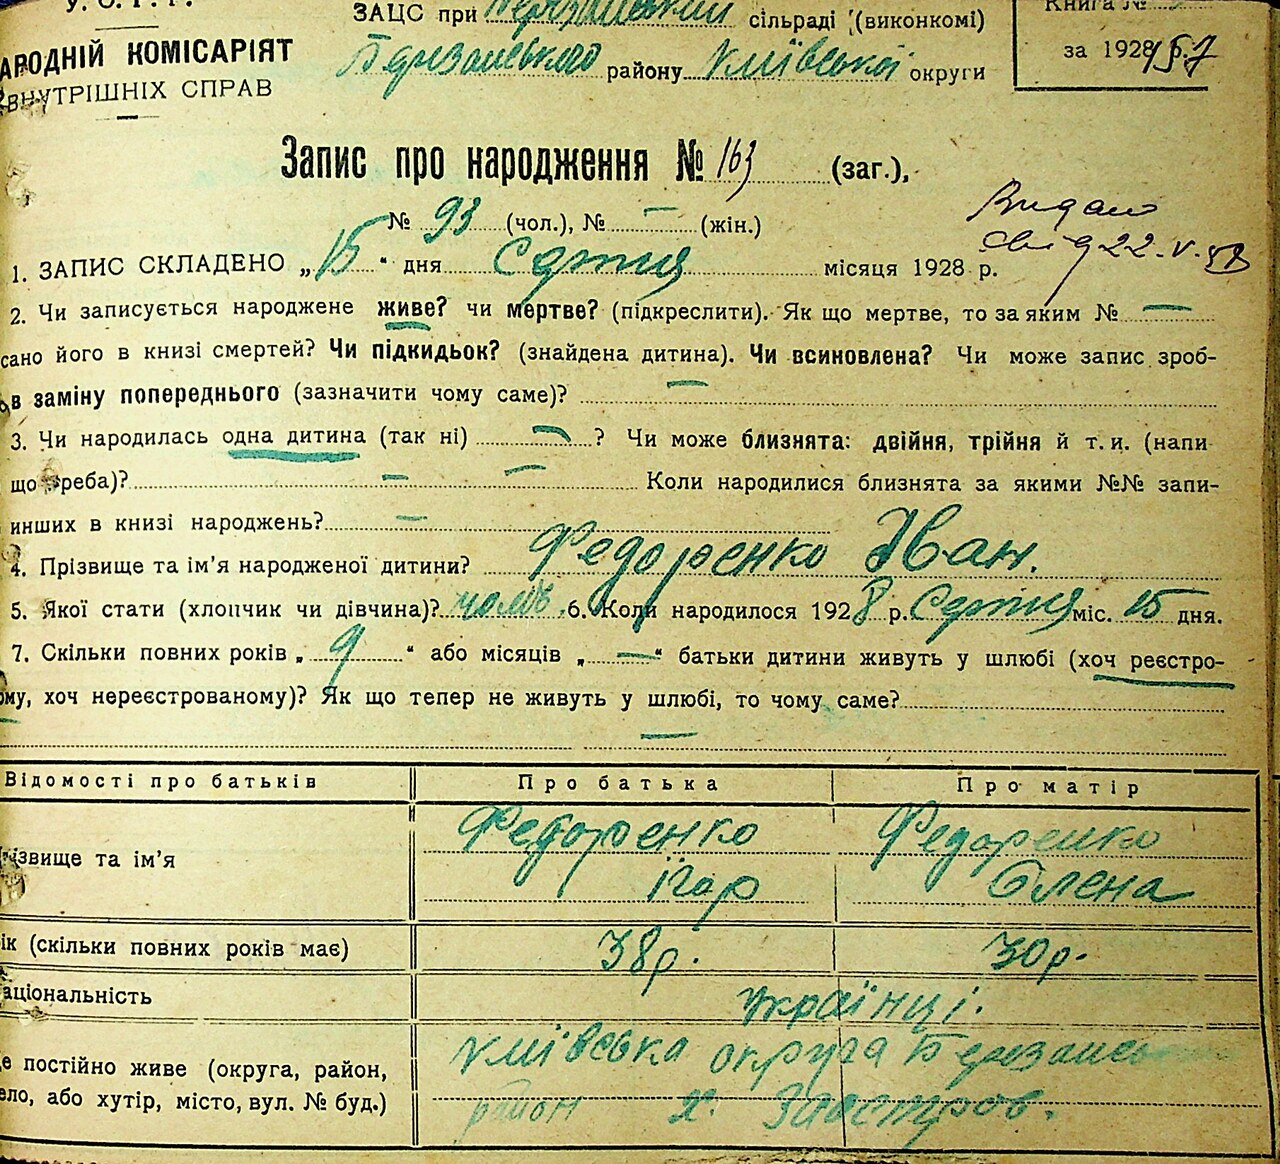 У. С. Р. Р.
ЗАЦС при Березанський сільраді (виконкомі)
Книга №
АРОДНІЙ КОМІСАРІЯТ
ВНУТРІШНІХ СПРАВ
Березанського району Київської округи
за 1928 р.
Запис про народження № 163 (заг.),
№ 93 (чол.), № — (жін.)
Видано
22.V.
1. ЗАПИС СКЛАДЕНО „15" дня Серпня місяця 1928 р.
2. Чи записується народжене живе? чи мертве? (підкреслити). Як що мертве, то за яким № —
сано його в книзі смертей? Чи підкидьок? (знайдена дитина). Чи всиновлена? Чи може запис зроб-
в заміну попереднього (зазначити чому саме)? —
3. Чи народилась одна дитина (так ні) — ? Чи може близнята: двійня, трійня й т. и. (напи
що треба)? — — Коли народилися близнята за якими №№ запи-
инших в книзі народжень? —
4. Прізвище та ім'я народженої дитини? Федоренко Іван.
5. Якої стати (хлопчик чи дівчина)? 6. Коли народилося 1928 р. Серпня міс. 15 дня.
7. Скільки повних років „ 9 " або місяців „ — " батьки дитини живуть у шлюбі (хоч реєстро-
ому, хоч нереєстрованому)? Як що тепер не живуть у шлюбі, то чому саме?
—
Відомості про батьків Про батька Про матір
різвище та ім'я Федоренко Ігор Федоренко Олена
ік (скільки повних років має) 38р. 30р.
аціональність Українці.
е постійно живе (округа, район, Київська округа
ело, або хутір, місто, вул. № буд.) район х. Заостров.